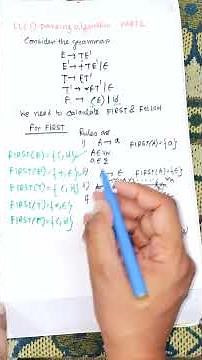 LL(1) parsing algorithm - PART 2
Consider the grammar
E → TE'
E' → +TE' | ε
T → FT'
T' → *FT' | ε
F → (E) | id
We need to calculate FIRST & FOLLOW
For FIRST
Rules are
1) A → a FIRST(A) = {a}
FIRST(E) = {(, id}
A ∈ Vn
a ∈ Σ
FIRST(E') = {+, ε}
→ ε FIRST(A) = {ε}
FIRST(T) = {(, id}
FIRST(T') = {*, ε}
FIRST(F) = {(, id}